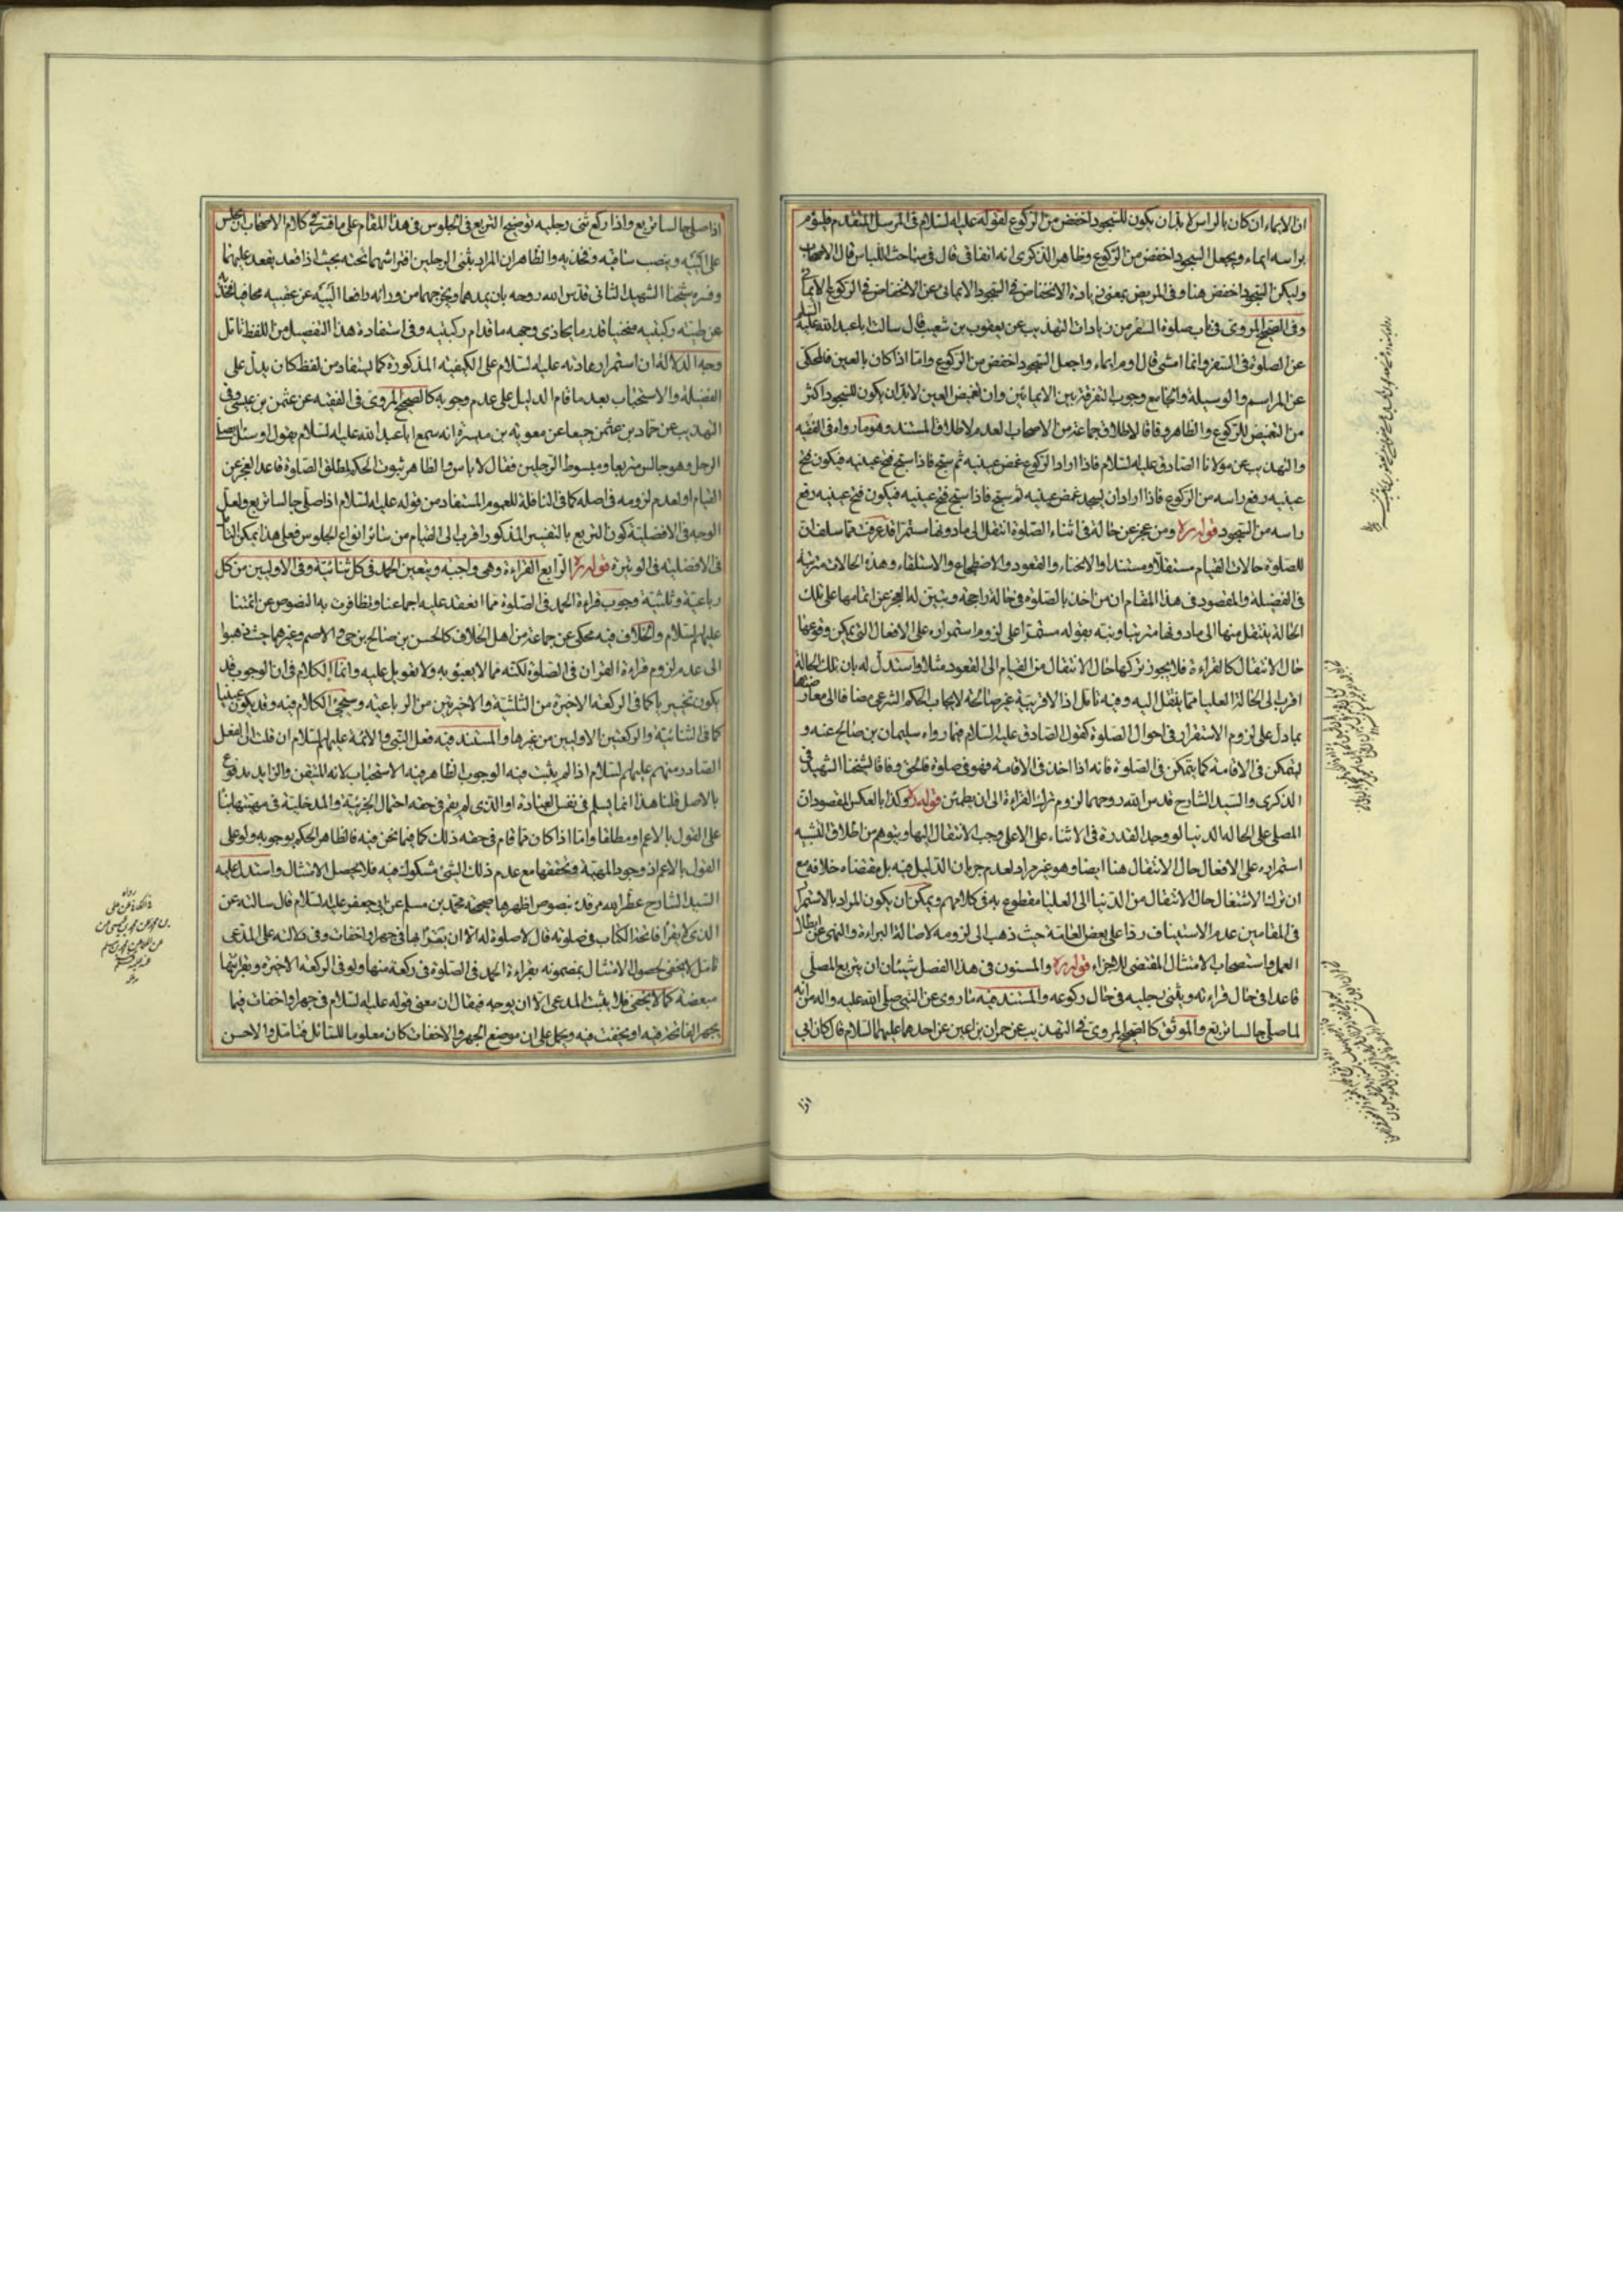 ان الايماء ان كان بالراس لا بد ان يكون للسجود اخفض من الركوع لقوله عليه السلام فى المرسل المتقدم فليؤم
براسه ايماء ويجعل السجود اخفض من الركوع وظاهر الذكرى انه اتفاقى قال فى مباحث اللباس قال الاصحاب
وليكن السجود اخفض هنا وفى المريض بمعنى زيادة الانخفاض فى السجود الايمائى عن الانخفاض فى الركوع الايمائى
وفى الصحيح المروى فى باب صلوة السفر من زيادات التهذيب عن يعقوب بن شعيب قال سالت ابا عبد الله عليه السلم
عن الصلوة فى السفر وانما امشى قال اوم ايماء واجعل السجود اخفض من الركوع واما اذا كان بالعين فالمحكى
عن المراسم والوسيلة و وجوب التفرقة بين الايمائين وان تغميض العين لا بد ان يكون للسجود اكثر
من التغميض للركوع والظاهر وفاقا لاطلاق جماعة من الاصحاب لعدمه لاطلاق المستند وهو ما رواه فى الفقيه
والتهذيب عن مولانا الصادق عليه السلام فاذا اراد الركوع غمض عينيه ثم سبح فاذا سبح فتح عينيه فيكون فتح
عينيه رفع راسه من الركوع فاذا اراد ان يسجد غمض عينيه ثم سبح فاذا سبح فتح عينيه فيكون فتح عينيه رفع
راسه من السجود قوله ره ومن عجز عن حالة فى اثناء الصلوة انتقل الى ما دونها مستمرا قد عرفت مما سلف ان
للصلوة حالات القيام مستقلا ومستندا والانحناء والقعود والاضطجاع والاستلقاء وهذه الحالات مترتبة
فى الفضيلة والمقصود فى هذا المقام ان من اخذ بالصلوة فى حالة راجحة وتبين له العجز عن اتمامها على تلك
الحالة ينتقل منها الى ما دونها مترتبا ونبه بقوله مستمرا على لزوم استمراره على الافعال التى يمكن وقوعها
حال الانتقال كالقراءة فلا يجوز تركها حال الانتقال من القيام الى القعود مثلا واستدل له بان تلك الحالة
اقرب الى الحالة العليا مما ينتقل اليه وفيه تامل اذ الاقربية غير صالحة لايجاب الحكم الشرعى مضافا الى معارضتها
بما دل على لزوم الاستقرار فى احوال الصلوة كقول الصادق عليه السلام فيما رواه سليمان بن صالح عنه و
ليتمكن فى الاقامة كما يتمكن فى الصلوة فانه اذا اخذ فى الاقامة فهو فى صلوة فالحق وفاقا لشيخنا الشهيد فى
الذكرى والسيد الشارح قدس الله روحهما لزوم ترك القراءة الى ان يطمئن قوله ره وكذا بالعكس المقصود ان
المصلى على الحالة الدنيا لو وجد القدرة فى الاثناء على الاعلى وجب الانتقال اليها ويتوهم من اطلاق التشبيه
استمراره على الافعال حال الانتقال هنا ايضا وهو غير مراد لعدم جريان الدليل فيه بل مقتضاه خلافه مع
ان ترك الاشتغال حال الانتقال من الدنيا الى العليا مقطوع به فى كلامهم ويمكن ان يكون المراد بالاستمرار
فى المقامين عدم الاستيناف ردا على بعض العامة حيث ذهب الى لزومه لاصالة البراءة والنهى عن ابطال
العمل واستصحاب الامتثال المقتضى للاجزاء قوله ره والمسنون فى هذا الفصل شيئان ان يتربع المصلى
قاعدا فى حال قراءته ويثنى رجليه فى حال ركوعه والمستند فيه ما روى عن النبى صلى الله عليه واله من انه
لما صلى جالسا تربع والموثق كالصحيح المروى فى التهذيب عن حمران بن اعين عن احدهما عليهما السلام قال كان ابى
اذا
اذا صلى جالسا تربع واذا ركع ثنى رجليه توضيح التربع فى الجلوس فى هذا المقام على ما كلام الاصحاب ان يجلس
على اليتيه وينصب ساقيه وفخذيه والظاهر ان المراد بثنى الرجلين افتراشهما تحته بحيث اذا قعد يقعد عليهما
وفسره شيخنا الشهيد الثانى قدس الله روحه بان يمدهما ويخرجهما من ورائه رافعا اليتيه عن عقبيه مجافيا فخذيه
عن طيه ركبتيه منحنيا قدر ما يحاذى وجهه ما قدام ركبتيه وفى استفادة هذا التفصيل من اللفظ تامل
وجه الدلالة ان استمرار عادته عليه السلام على الكيفية المذكورة كما يستفاد من لفظ كان يدل على
الفضيلة والاستحباب بعد ما قام الدليل على عدم وجوبه كالصحيح المروى فى الفقيه عن عثمن بن عيسى وفى
التهذيب عن حماد بن عثمن جميعا عن معوية بن ميسرة انه سمع ابا عبد الله عليه السلام يقول او سئل يصلى
الرجل وهو جالس متربعا ومبسوط الرجلين فقال لا باس والظاهر ثبوت الحكم لمطلق الصلوة قاعدا لعجز عن
القيام او لعدم لزومه فى اصله كما فى النافلة للعموم المستفاد من قوله عليه السلام اذا صلى جالسا تربع ولعل
الوجه فى الافضلية كون التربع بالتفسير المذكور اقرب الى القيام من سائر انواع الجلوس فعلى هذا يمكن
فى الافضلية فى الوتيرة قوله ره الرابع القراءة وهى واجبة ويتعين الحمد فى كل ثنائية وفى الاوليين من كل
رباعية وثلثية وجوب قراءة الحمد فى الصلوة مما انعقد عليه اجماعنا وتظافرت به النصوص عن ائمتنا
عليهم السلام والخلاف فيه محكى عن جماعة من اهل الخلاف كالحسن بن صالح بن حى والاصم وغيرهما حيث ذهبوا
الى عدم لزوم قراءة القران فى الصلوة لكنه مما لا يعبؤ به ولا تعويل عليه وانما الكلام فى ان الوجوب قد
يكون تخييريا كما فى الركعة الاخيرة من الثلثية والاخريين من الرباعية وسيجئ الكلام فيه وقد يكون عينيا
كما فى الثنائية والركعتين الاوليين من غيرها والمستند فيه فعل النبى والائمة عليهم السلام ان قلت ان الفعل
الصادر منهم عليهم السلام اذا لم يثبت فيه الوجوب الظاهر فيه الاستحباب لانه المتيقن والزايد مدفوع
بالاصل قلنا هذا انما يسلم فى نفس العبادة او الذى لم يقم فى حقه احتمال الجزئية والمدخلية فى مهيتها بناء
على القول بالاعم او مطلقا واما اذا كان مما قام فى حقه ذلك كما فيما نحن فيه فالظاهر الحكم بوجوبه ولو على
القول بالاعم اذ وجود المهية وتحققها مع عدم ذلك الشئ مشكوك فيه فلا يحصل الامتثال واستدل عليه
السيد الشارح عطر الله مرقده بنصوص اظهرها صحيحة محمد بن مسلم عن ابى جعفر عليه السلام قال سالته عن
الذى لا يقرأ فاتحة الكتاب فى صلوته قال لا صلوة له الا ان يقرأ بها فى جهر او اخفات وفى دلالته على المدعى
تامل لا يخفى لحصول الامتثال بمضمونه بقراءة الحمد فى الصلوة فى ركعة منها ولو فى الركعة الاخيرة وبقرائتها
مبعضة كما لا يخفى فلا يثبت المدعى الا ان يوجه فيقال ان معنى قوله عليه السلام فى جهر او اخفات فيما
يجهر الفاتحة فيه او يخفت فيه ويحمل على ان موضع الجهر والاخفات كان معلوما للسائل فتامل والاحسن